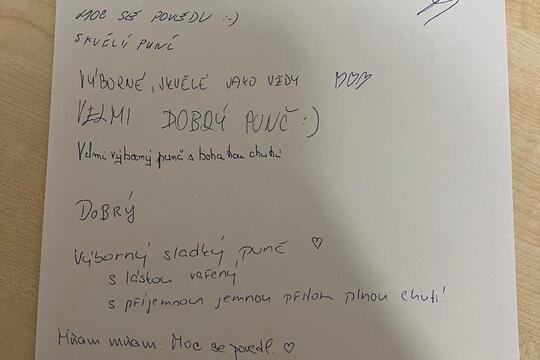 MOC SE POVEDLU :-)
SKVĚLÝ PUNČ
VÝBORNÉ, SKVĚLÉ JAKO VŽDY ♡♡♡
VELMI DOBRÝ PUNČ :)
Velmi výborný punč s bohatou chutí
DOBRÝ
Výborný sladký punč ♡
s láskou vařený
s příjemnou jemnou přitom plnou chutí.
Mňam mňam. Moc se povedl. ♡